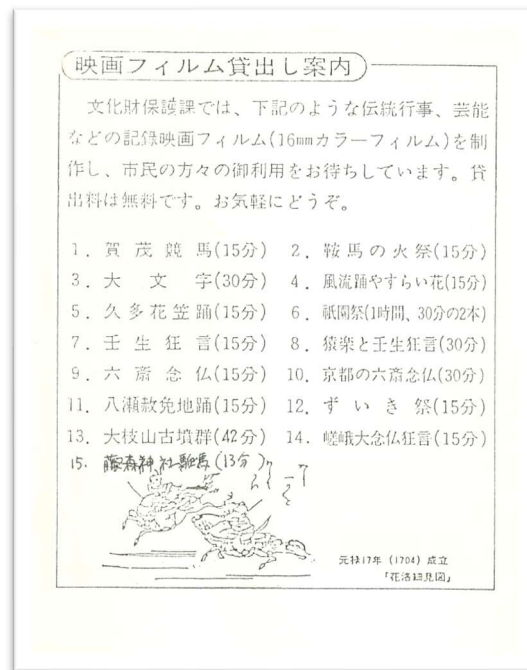 映画フィルム貸出し案内
文化財保護課では、下記のような伝統行事、芸能
などの記録映画フィルム(16mmカラーフィルム)を制
作し、市民の方々の御利用をお待ちしています。貸
出料は無料です。お気軽にどうぞ。
1. 賀茂競馬(15分) 2. 鞍馬の火祭(15分)
3. 大文字(30分) 4. 風流踊やすらい花(15分)
5. 久多花笠踊(15分) 6. 祇園祭(1時間、30分の2本)
7. 壬生狂言(15分) 8. 猿楽と壬生狂言(30分)
9. 六斎念仏(15分) 10. 京都の六斎念仏(30分)
11. 八瀬赦免地踊(15分) 12. ずいき祭(15分)
13. 大枝山古墳群(42分) 14. 嵯峨大念仏狂言(15分)
15. 藤森神社駈馬(13分)
元禄17年 (1704) 成立
「花洛細見図」